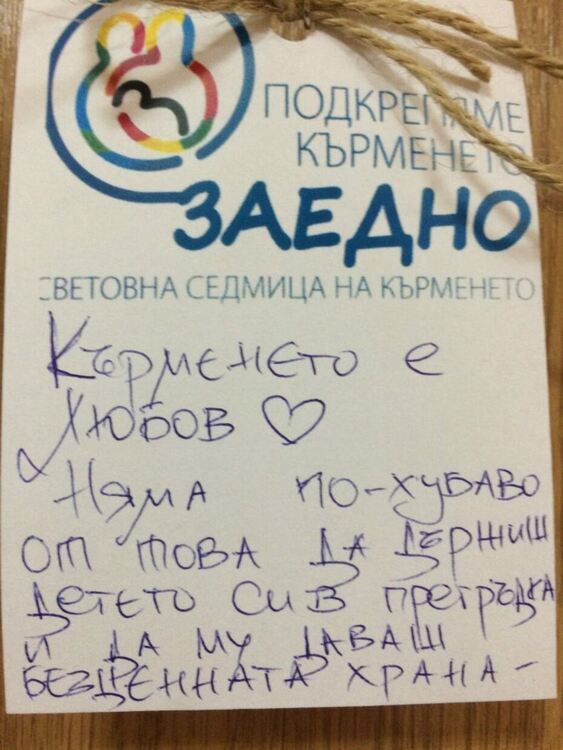 ПОДКРЕПЯМЕ
КЪРМЕНЕТО
ЗАЕДНО
СВЕТОВНА СЕДМИЦА НА КЪРМЕНЕТО
Кърменето е
Любов ♡
Няма по-хубаво
от това да държиш
детето си в прегръдка
и да му даваш
безценната храна -